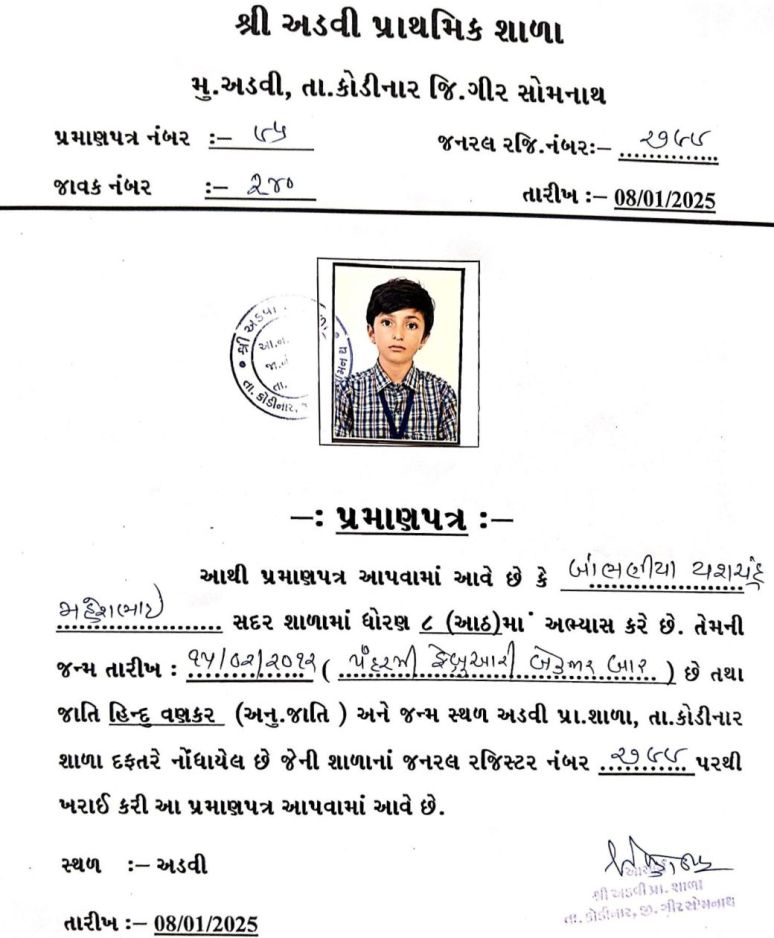 શ્રી અડવી પ્રાથમિક શાળા
મુ.અડવી, તા.કોડીનાર જિ.ગીર સોમનાથ
પ્રમાણપત્ર નંબર :– ૬૫ જનરલ રજિ.નંબર:–
જાવક નંબર :– ૨૪૦ તારીખ :– 08/01/2025
શ્રી અડવી
તા. કોડીનાર,
–: પ્રમાણપત્ર :–
આથી પ્રમાણપત્ર આપવામાં આવે છે કે બાંભણીયા યશચંદ્ર
મહેશભાઈ સદર શાળામાં ધોરણ ૮ (આઠ)માં અભ્યાસ કરે છે. તેમની
જન્મ તારીખ : ૧૫/૦૨/૨૦૧૨ ( પંદરમી ફેબ્રુઆરી બે હજાર બાર ) છે તથા
જાતિ હિન્દુ વણકર (અનુ.જાતિ ) અને જન્મ સ્થળ અડવી પ્રા.શાળા, તા.કોડીનાર
શાળા દફતરે નોંધાયેલ છે જેની શાળાનાં જનરલ રજિસ્ટર નંબર પરથી
ખરાઈ કરી આ પ્રમાણપત્ર આપવામાં આવે છે.
સ્થળ :– અડવી
આચાર્ય
શ્રી અડવી પ્રા. શાળા
તા. કોડીનાર, જી. ગીર સોમનાથ
તારીખ :– 08/01/2025